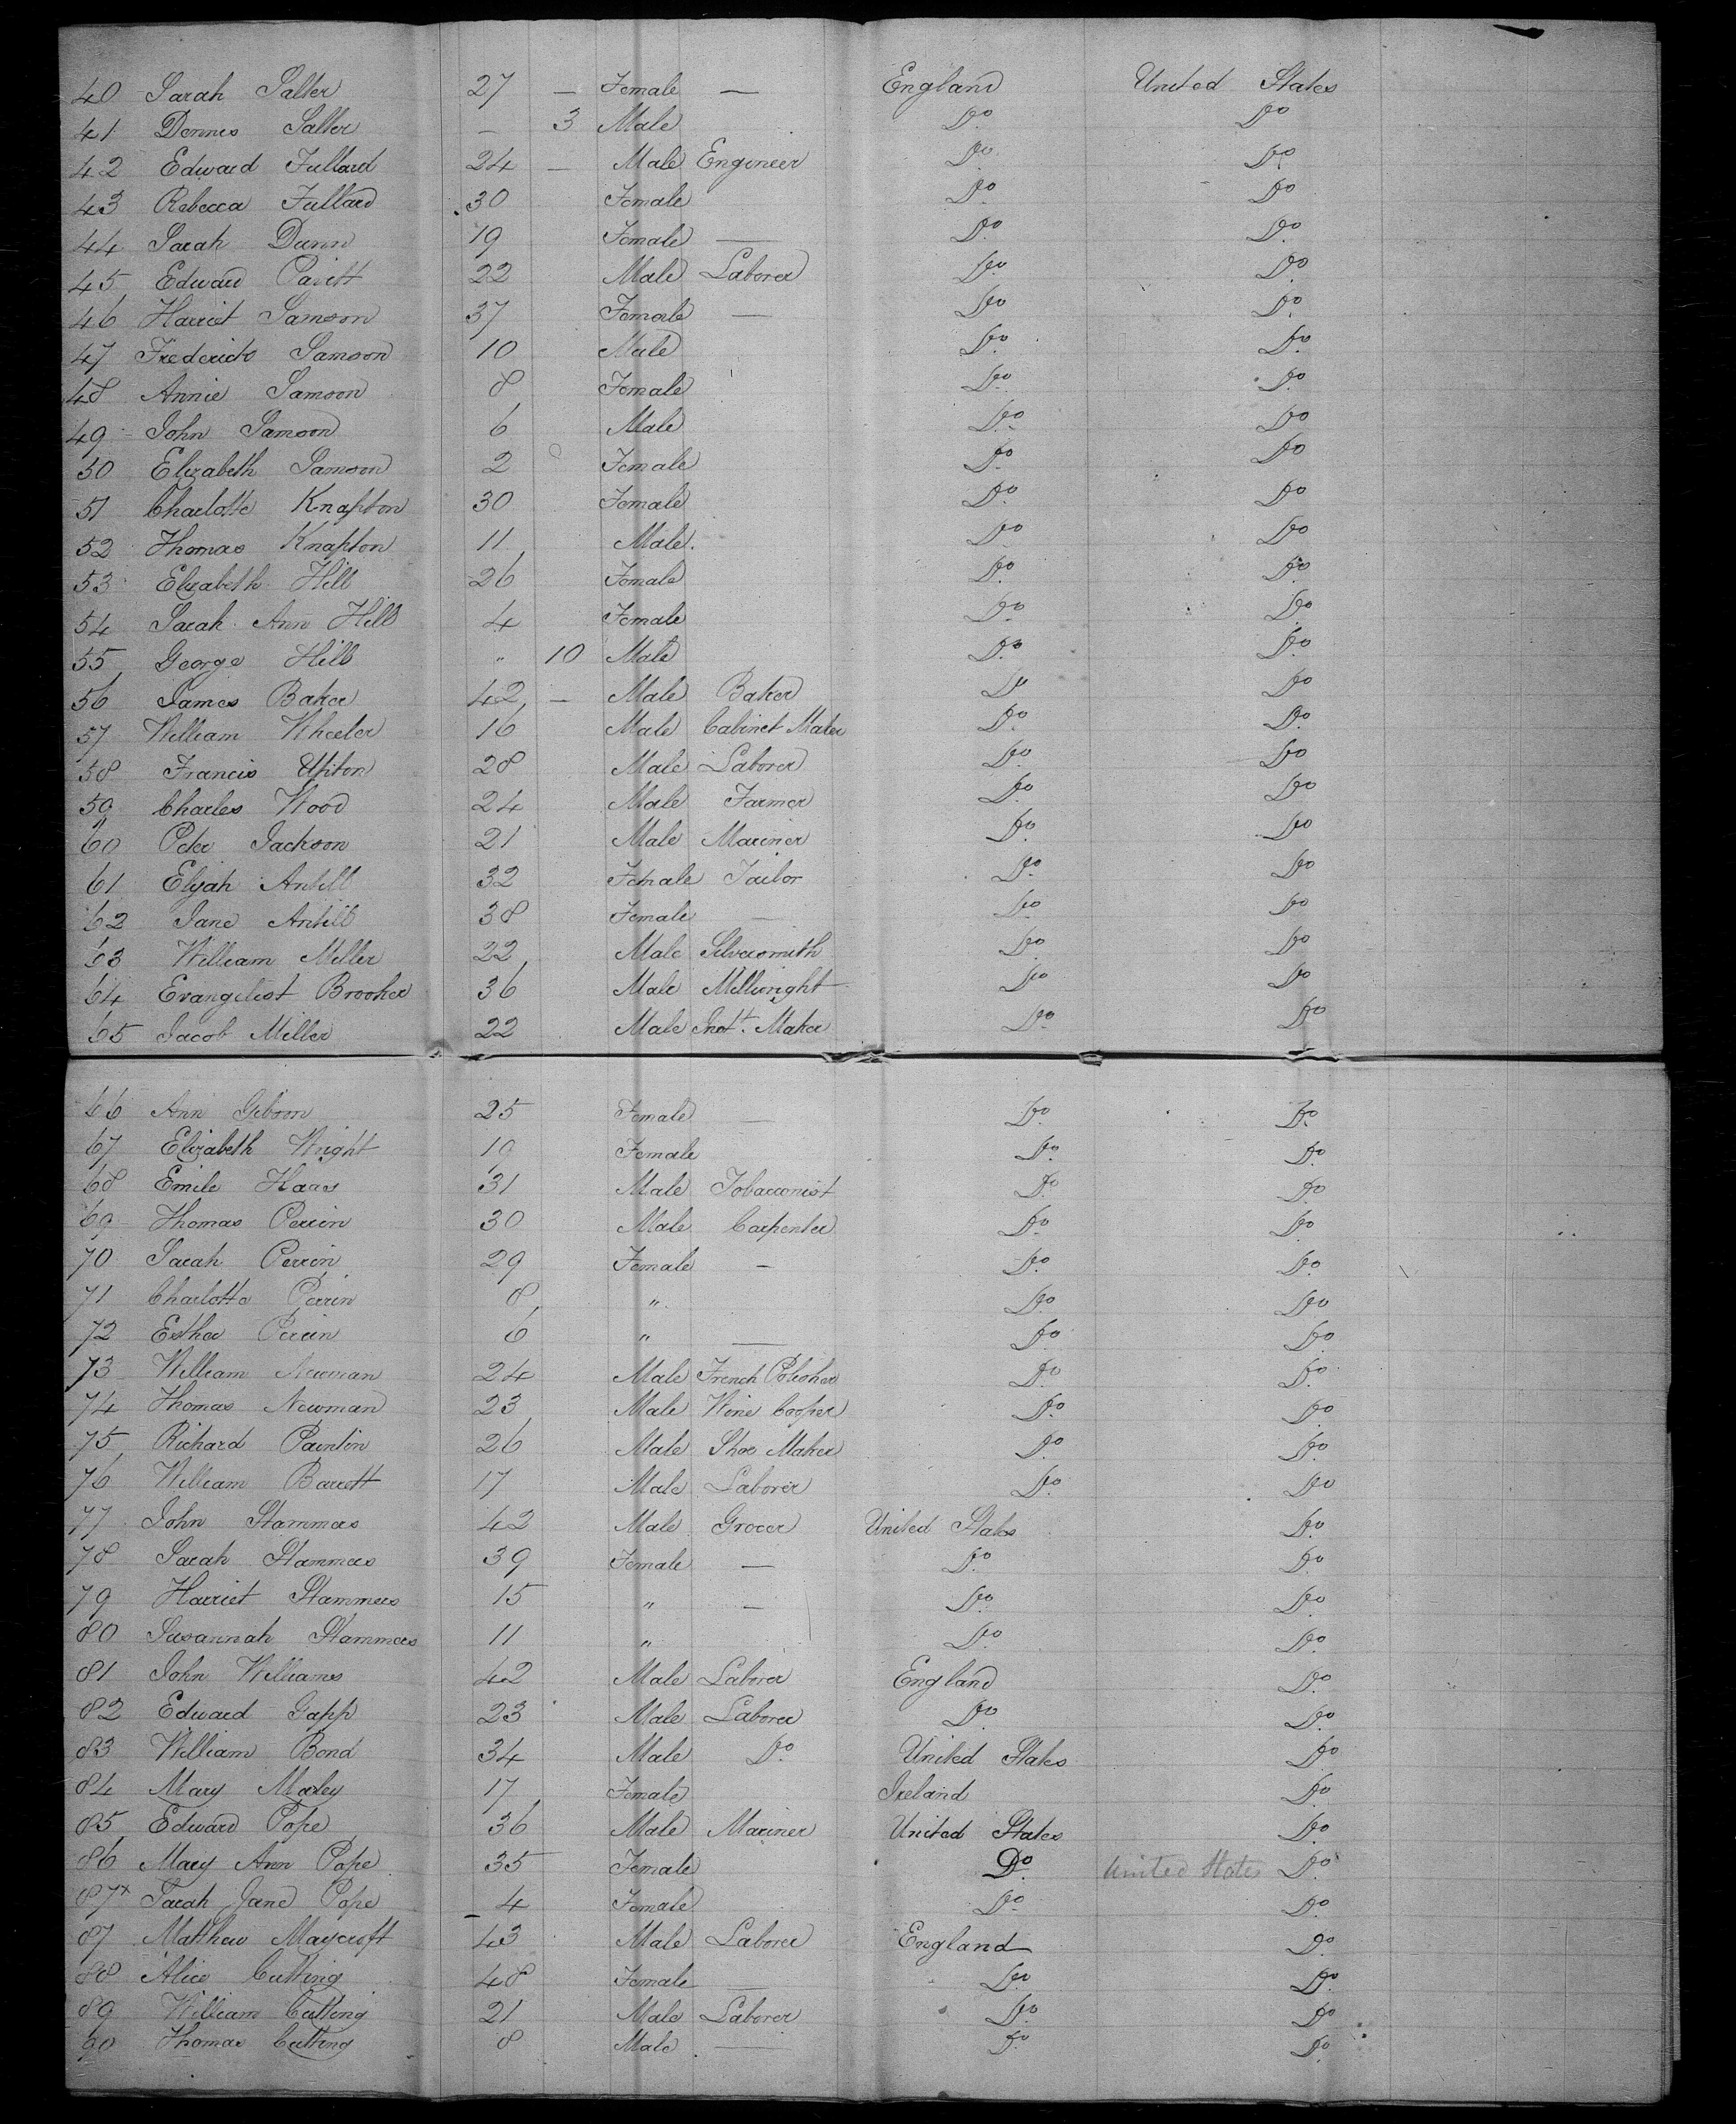 40 Sarah Salter 27 — Female — England United States
41 Dennis Salter — 3 Male Do Do
42 Edward Fullard 24 — Male Engineer Do Do
43 Rebecca Fullard 30 Female Do Do
44 Sarah Dunn 19 Female — Do Do
45 Edward Pavitt 22 Male Laborer Do Do
46 Harriet Samson 37 Female — Do Do
47 Frederick Samson 10 Male Do Do
48 Annie Samson 8 Female Do Do
49 John Samson 6 Male Do Do
50 Elizabeth Samson 2 Female Do Do
51 Charlotte Knapton 30 Female Do Do
52 Thomas Knapton 11 Male Do Do
53 Elizabeth Hill 26 Female Do Do
54 Sarah Ann Hill 4 Female Do Do
55 George Hill " 10 Male Do Do
56 James Baker 42 — Male Baker Do Do
57 William Wheeler 16 Male Cabinet Maker Do Do
58 Francis Upton 28 Male Laborer Do Do
59 Charles Wood 24 Male Farmer Do Do
60 Peter Jackson 21 Male Mariner Do Do
61 Elijah Antill 32 Female Tailor Do Do
62 Jane Antill 38 Female — Do Do
63 William Miller 22 Male Silversmith Do Do
64 Evangelist Brooker 36 Male Millwright Do Do
65 Jacob Miller 22 Male Inst. Maker Do Do
66 Ann Gibson 25 Female — Do Do
67 Elizabeth Wright 19 Female Do Do
68 Emile Haas 31 Male Tobacconist Do Do
69 Thomas Perrin 30 Male Carpenter Do Do
70 Sarah Perrin 29 Female — Do Do
71 Charlotte Perrin 8 " Do Do
72 Esther Perrin 6 " — Do Do
73 William Newman 24 Male French Polisher Do Do
74 Thomas Newman 23 Male Wine Cooper Do Do
75 Richard Paintin 26 Male Shoe Maker Do Do
76 William Barrett 17 Male Laborer Do Do
77 John Stammers 42 Male Grocer United States Do
78 Sarah Stammers 39 Female — Do Do
79 Harriet Stammers 15 " — Do Do
80 Susannah Stammers 11 " Do Do
81 John Williams 42 Male Laborer England Do
82 Edward Gapp 23 Male Laborer Do Do
83 William Bond 34 Male Do United States Do
84 Mary Moxley 17 Female Ireland Do
85 Edward Pope 36 Male Mariner United States Do
86 Mary Ann Pope 35 Female Do United States Do
87x Sarah Jane Pope 4 Female Do Do
87 Matthew Maycroft 43 Male Laborer England Do
88 Alice Cutting 48 Female — Do Do
89 William Cutting 21 Male Laborer Do Do
90 Thomas Cutting 8 Male — Do Do